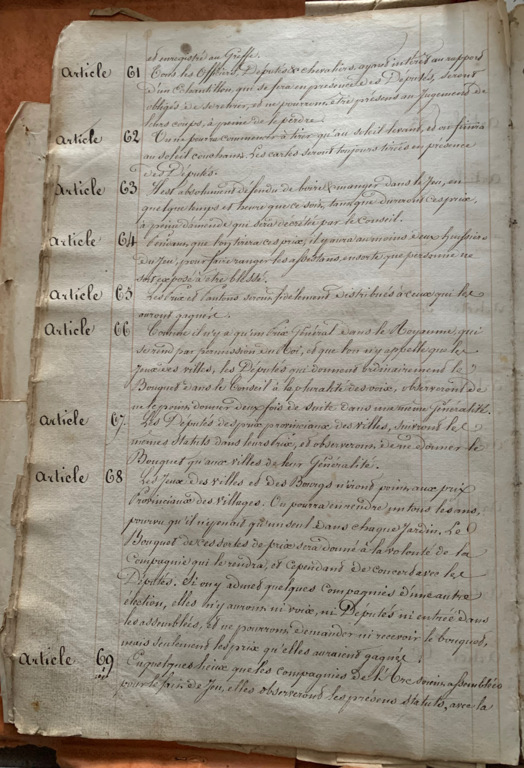 et enregistré au Greffe.
Article 61 Tous les Officiers, Députés & chevaliers, ayant intérêt au rapport
d'un Echantillon, qui se fera en présence des Députés, seront
obligés de se retirer, et ne pourront être présent au Jugement de
leurs coups, à peine de le perdre.
Article 62 On ne pourra commencer à tirer qu'au soleil levant, et on finira
au soleil couchant. Les cartes seront toujours tirées en présence
des Députés.
Article 63 Il est absolument défendu de boire & manger dans le Jeu, en
quelque temps et heure que ce soit, tant que dureront les prix,
à peine d'amende qui sera décrétée par le Conseil.
Article 64 Pendant que l'on tirera ces prix, il y aura au moins deux huissiers
du Jeu, pour faire ranger les assistans, ensorte que personne ne
soit exposé à être blessé.
Article 65 Les Prix et Pantons seront fidèlement distribués à ceux qui les
auront gagnés.
Article 66 Comme il n'y a qu'un Prix Général dans le Royaume, qui
se rend par permission du Roi, et que l'on n'y appelle que les
Jeux des villes, les Députés qui donnent ordinairement le
Bouquet dans le Conseil à la pluralité des voix, observeront de
ne le point donner deux fois de suite dans une même Généralité.
Article 67 Les Députés des prix provinciaux des villes, suivront les
mêmes statuts dans leurs prix, et observeront de ne donner le
Bouquet qu'aux villes de leur Généralité.
Article 68 Les Jeux des villes et des Bourgs n'iront point aux prix
Provinciaux des Villages. On pourra en rendre, en tous les ans,
pourvu qu'il n'y en ait qu'un seul dans chaque Jardin. Le
Bouquet de ces sortes de prix sera donné à la volonté de la
Compagnie qui le rendra, et cependant de concert avec les
Députés. Si on y admet quelques compagnies d'une autre
élection, elles n'y auront ni voix, ni Députés ni entrée dans
les assemblées, et ne pourront demander ni recevoir le bouquet,
mais seulement les prix qu'elles auraient gagnés.
Article 69 En quelques lieux que les compagnies de l'Arc soient assemblées
pour le fait de Jeu, elles observeront les présens statuts, avec la